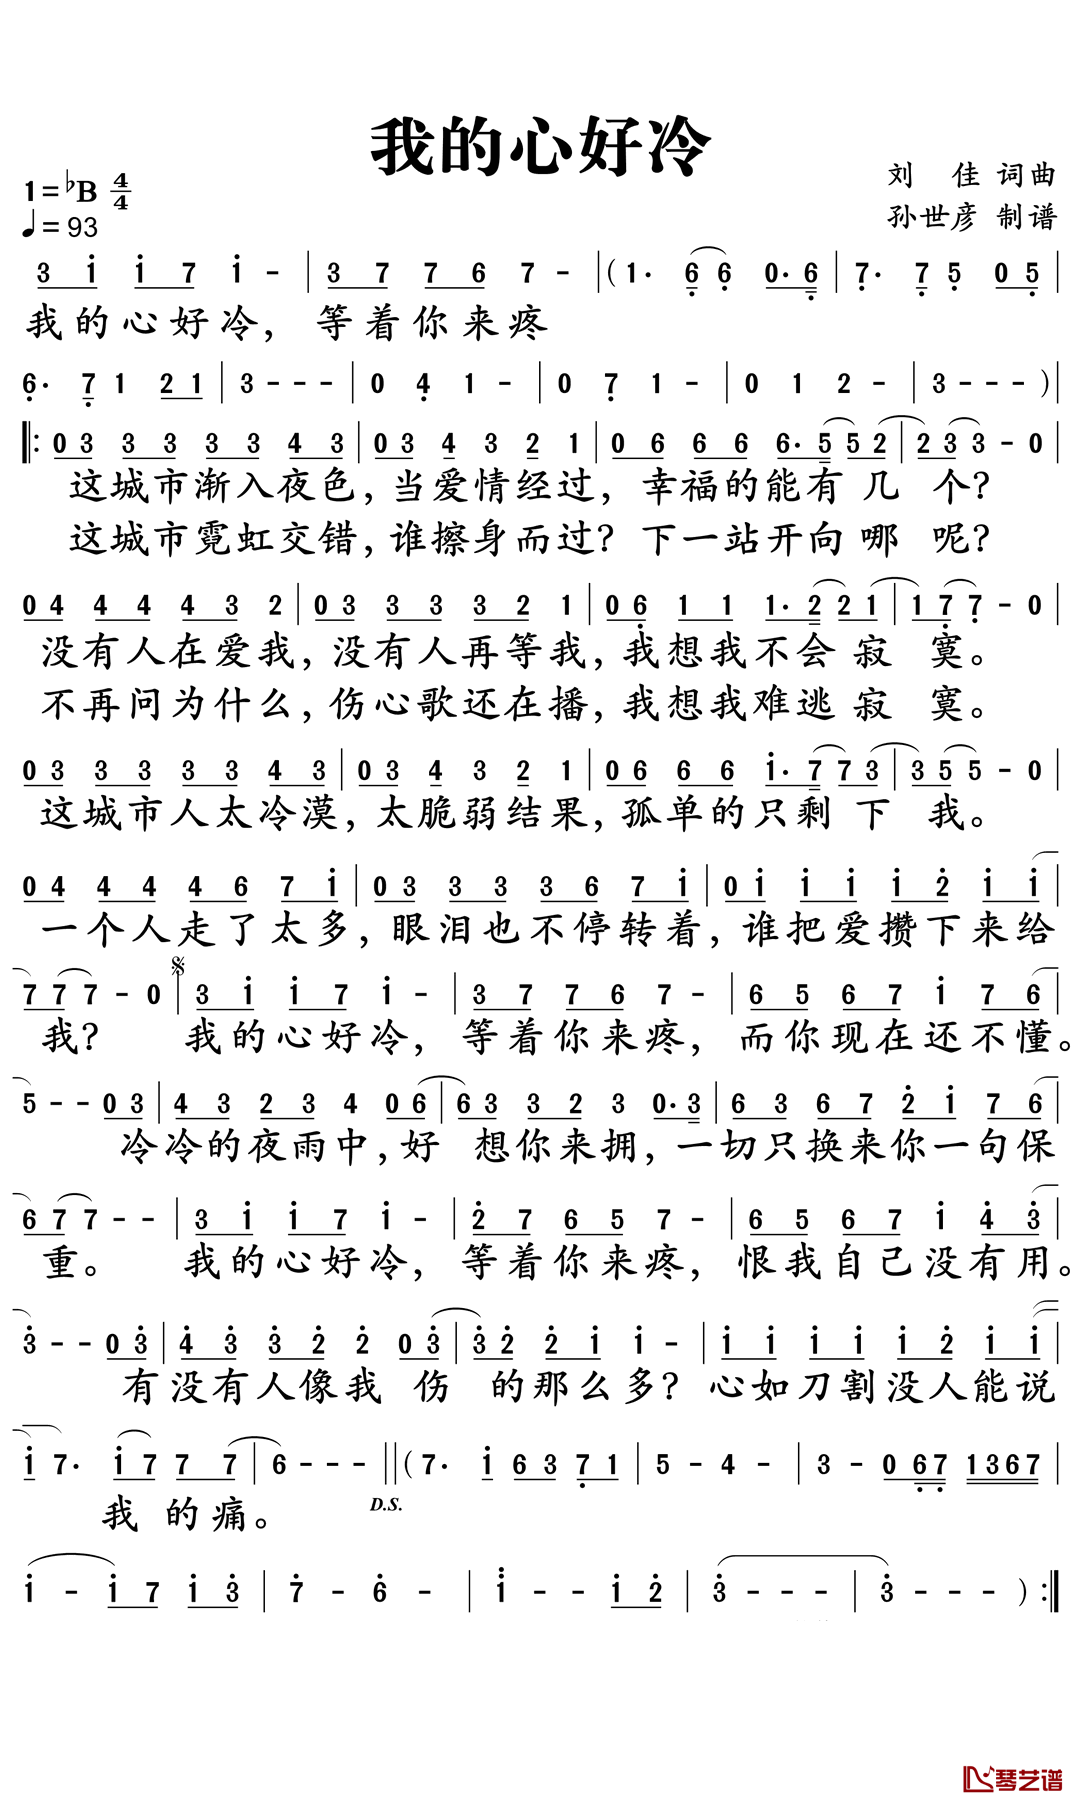 我的心好冷
1=♭B 4/4
刘 佳 词曲
♩= 93
孙世彦 制谱
3 i i 7 i - | 3 7 7 6 7 - | ( 1· 6 6 0· 6 | 7· 7 5 0 5 |
我的心好冷，等着你来疼
6· 7 1 2 1 | 3 - - - | 0 4 1 - | 0 7 1 - | 0 1 2 - | 3 - - - ) |
‖: 0 3 3 3 3 3 4 3 | 0 3 4 3 2 1 | 0 6 6 6 6· 5 5 2 | 2 3 3 - 0 |
这城市渐入夜色，当爱情经过，幸福的能有几个？
这城市霓虹交错，谁擦身而过？下一站开向哪呢？
0 4 4 4 4 3 2 | 0 3 3 3 3 2 1 | 0 6 1 1 1· 2 2 1 | 1 7 7 - 0 |
没有人在爱我，没有人再等我，我想我不会寂寞。
不再问为什么，伤心歌还在播，我想我难逃寂寞。
0 3 3 3 3 3 4 3 | 0 3 4 3 2 1 | 0 6 6 6 i· 7 7 3 | 3 5 5 - 0 |
这城市人太冷漠，太脆弱结果，孤单的只剩下我。
0 4 4 4 4 6 7 i | 0 3 3 3 3 6 7 i | 0 i i i i 2 i i |
一个人走了太多，眼泪也不停转着，谁把爱攒下来给
7 7 7 - 0 | 𝄋 3 i i 7 i - | 3 7 7 6 7 - | 6 5 6 7 i 7 6 |
我？ 我的心好冷，等着你来疼，而你现在还不懂。
5 - - 0 3 | 4 3 2 3 4 0 6 | 6 3 3 2 3 0· 3 | 6 3 6 7 2 i 7 6 |
冷冷的夜雨中，好想你来拥，一切只换来你一句保
6 7 7 - - | 3 i i 7 i - | 2 7 6 5 7 - | 6 5 6 7 i 4 3 |
重。 我的心好冷，等着你来疼，恨我自己没有用。
3 - - 0 3 | 4 3 3 2 2 0 3 | 3 2 2 i i - | i i i i i 2 i i |
有没有人像我伤的那么多？心如刀割没人能说
i 7· i 7 7 7 | 6 - - - ‖ ( 7· i 6 3 7 1 | 5 - 4 - | 3 - 0 6 7 1 3 6 7 |
我的痛。 D.S.
i - i 7 i 3 | 7 - 6 - | i - - i 2 | 3 - - - | 3 - - - ) :‖
琴艺谱